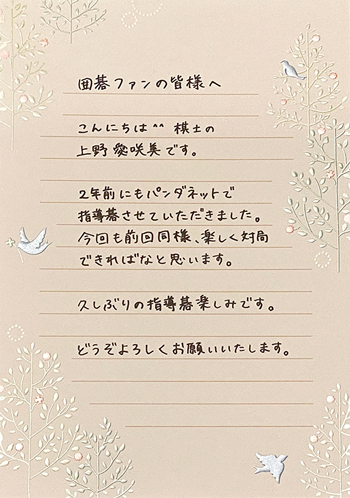 囲碁ファンの皆様へ
こんにちは^^ 棋士の
上野愛咲美です。
2年前にもパンダネットで
指導碁させていただきました。
今回も前回同様、楽しく対局
できればなと思います。
久しぶりの指導碁楽しみです。
どうぞよろしくお願いいたします。